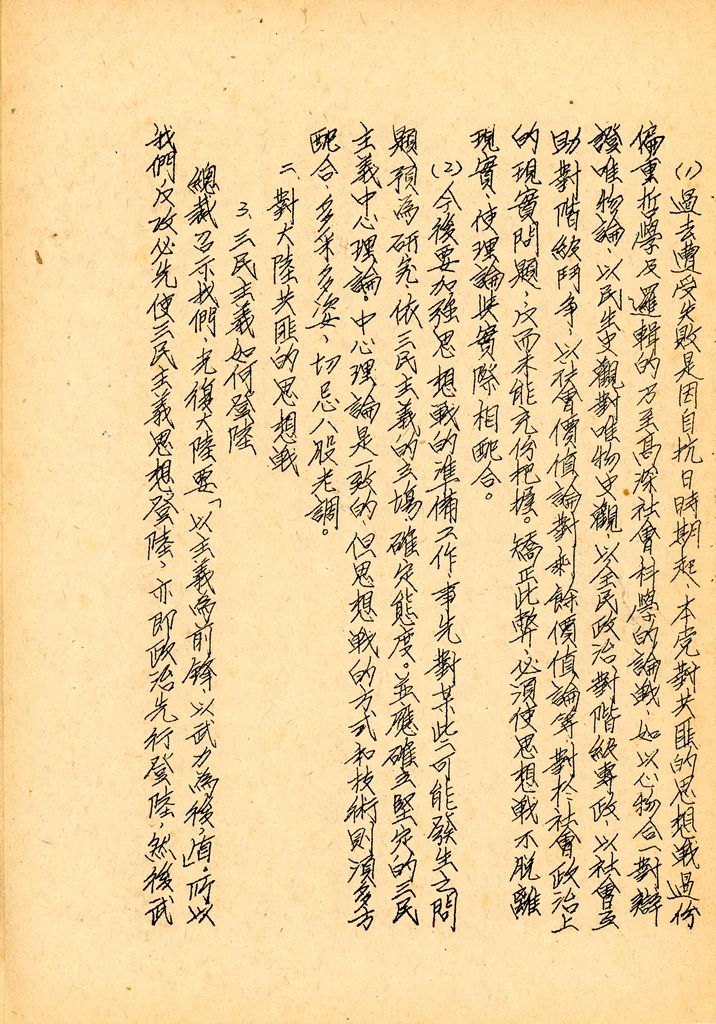 (1)過去遭受失敗是因自抗日時期起、本党對共匪的思想戰過份
偏重哲學及邏輯的乃至高深社會科學的論戰，如以心物合一對辯
證唯物論、以民生史觀對唯物史觀、以全民政治對階級專政、以社會互
助對階級鬥争、以社會價值論對剩餘價值論等、對於社會政治上
的現實問題，反而未能充份把握。矯正此弊，必須使思想戰不脫離
現實，使理論與實際相配合。
(2)今後要加強思想戰的準備工作，事先對某些可能發生之問
題預為研究，依三民主義的立場，確定態度。並應確立堅定的三民
主義中心理論。中心理論是一致的，但思想戰的方式和技術則須多方
配合，多采多姿，切忌八股老調。
二、對大陸共匪的思想戰
3、三民主義如何登陸
總裁召示我們，光復大陸要「以主義為前鋒，以武力為後盾」。所以
我們反攻必先使三民主義思想登陸，亦即政治先行登陸，然後武